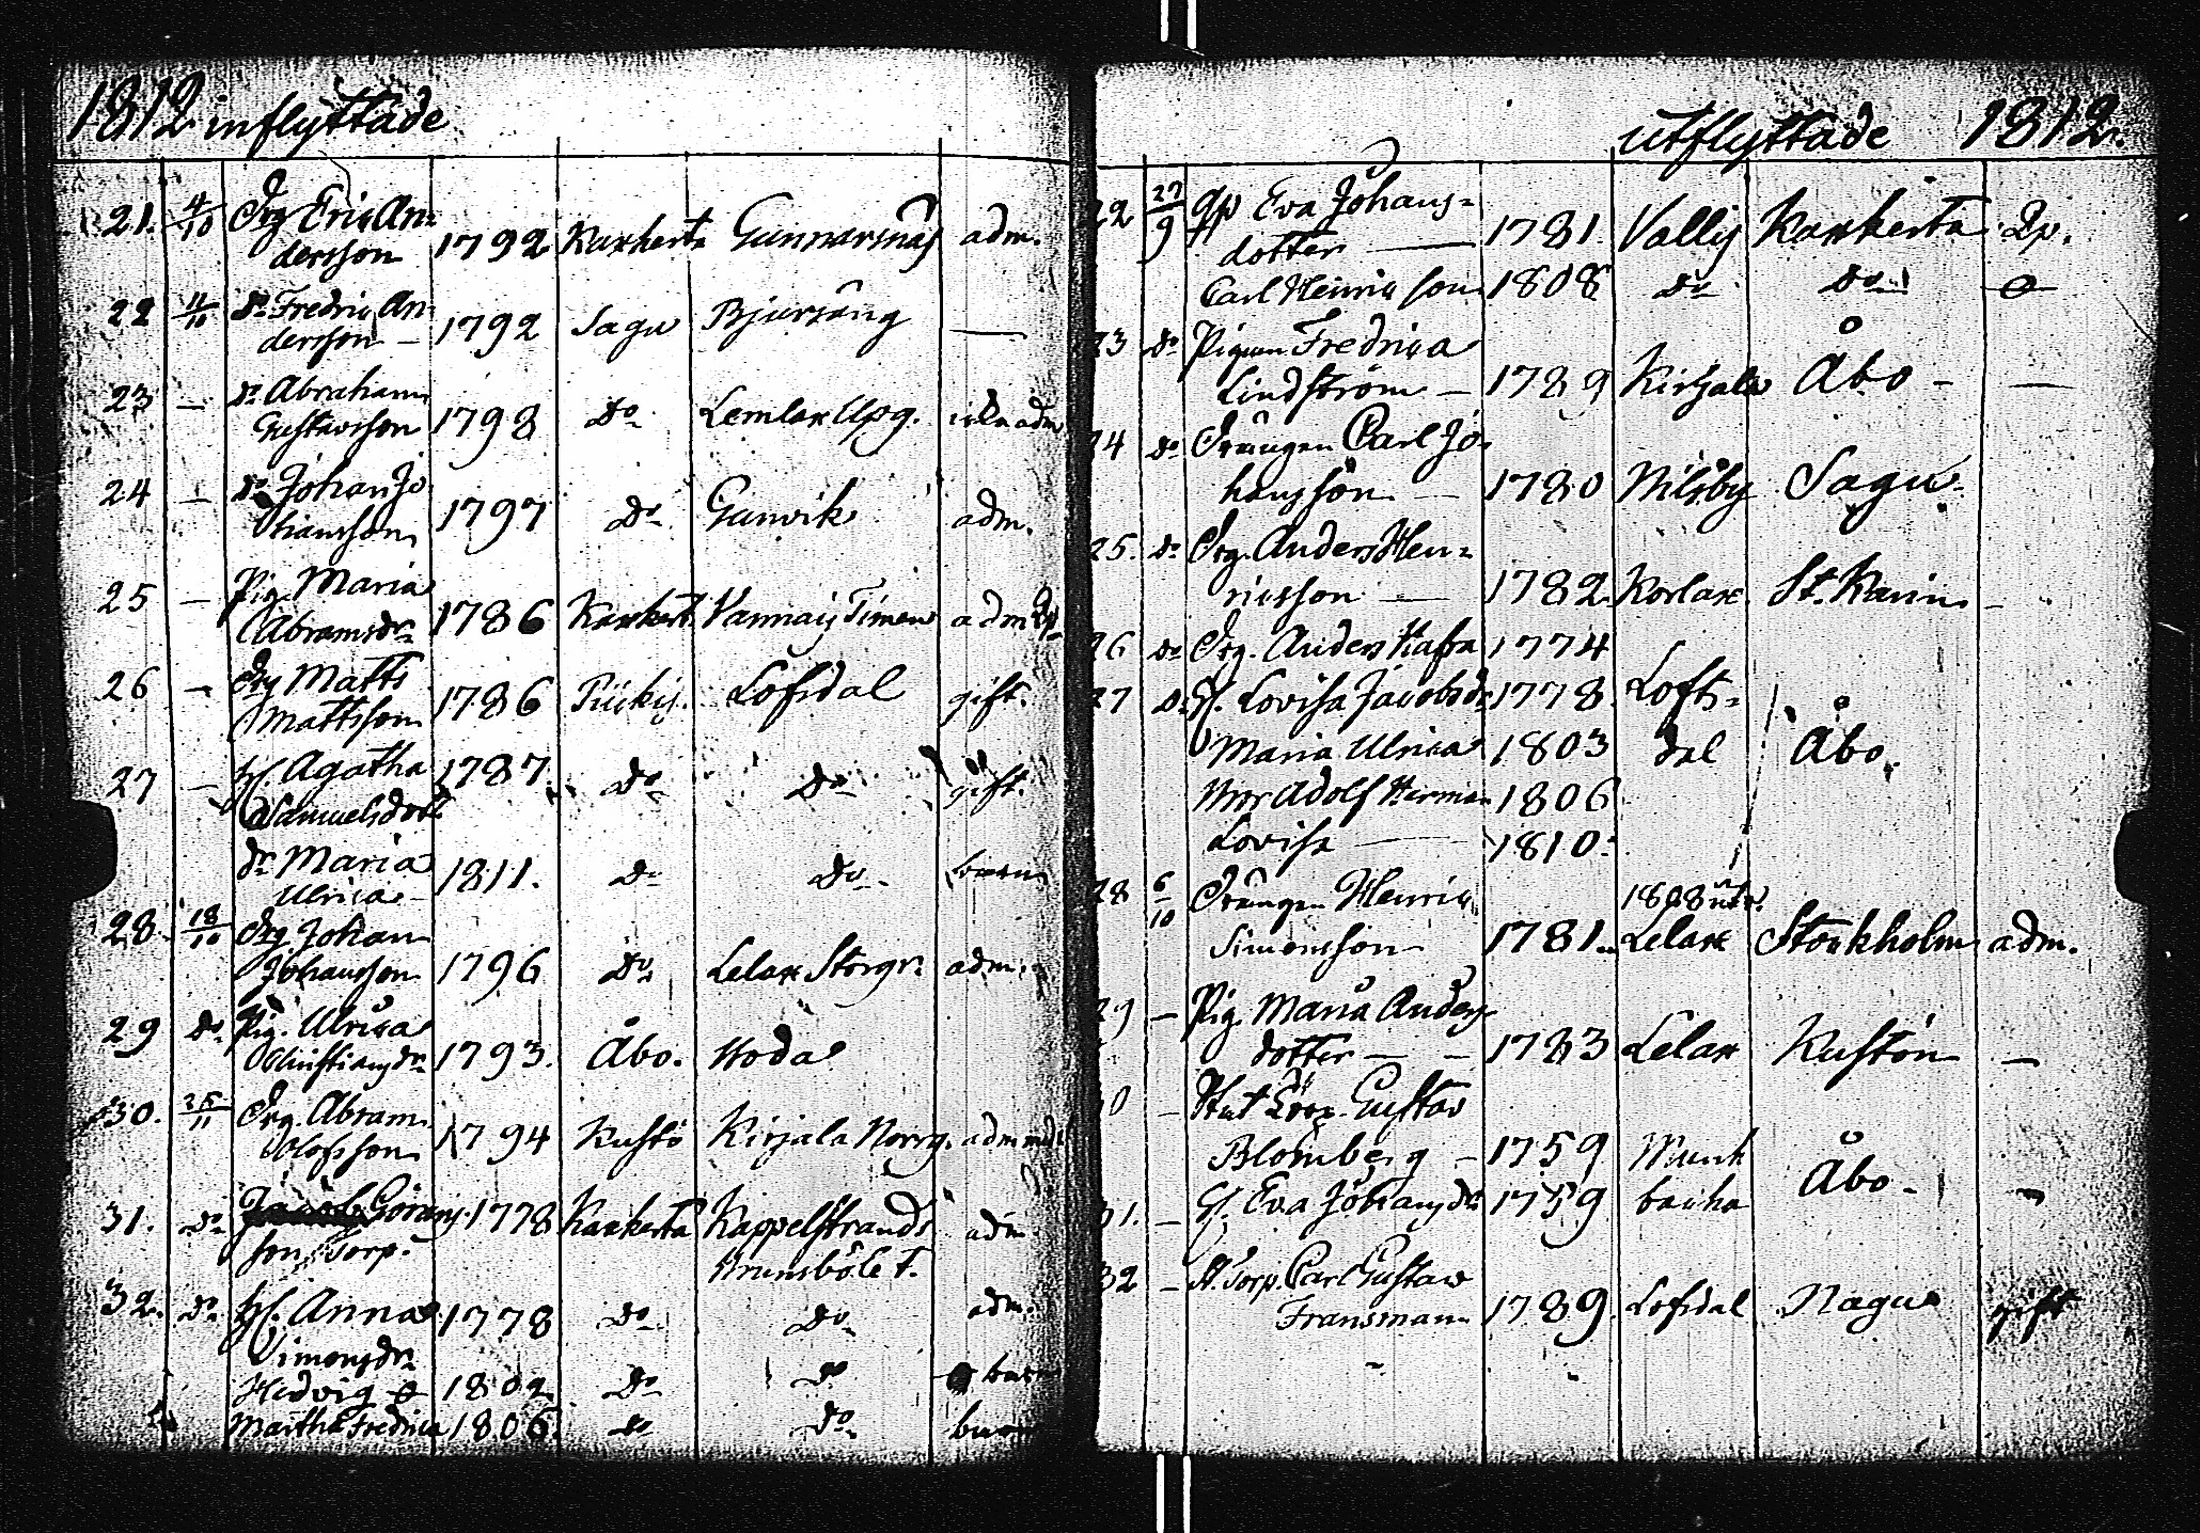 1812 inflyttade
21. 4/10 Drg Eric An-
dersson 1792 Karkerta Gunnarsnäs adm.
22 11/10 Do Fredric An-
dersson - 1792 Sagu Bjursäng —
23 — Do Abraham
Gustavsson 1798 Do Lemlax Upg. icke adm
24 — Do Johan Jo
hansson 1797 Do Gunvik adm.
25 — Pig. Maria
Abramsdr 1786 Karkert. adm
26 — Drg Matts
Mattsson 1786 Pückis. Lofsdal gift.
27 — H. Agatha 1787. Do Do gift.
Samuelsdott
dr Maria 1811. Do Do barn
Ulrica -
28 18/10 Drg. Johan
Johansson 1796 Do Lelax Storgr. adm.
29 Do Pig. Ulrica
Christiansdr 1793. Åbo. Hoda
30. 25/11 Drg. Abram
Olofsson 1794 Kustö Kirjala Norrg. adm
31. Do Jacob Görans- 1778 Karkerta Kappelstrands adm.
son Torp. Brunsböle t.
32. Do H. Anna 1778 Do Do adm.
Simonsdr
Hedvig 1802 Do Do barn
Martha Fredrica 1806. Do Do barn
utflyttade 1812.
22 27/9 qp Eva Johans-
dotter — 1781. Vallis Karkerta Qp.
Carl Henric son 1808 Do Do
23 Do Pigan Fredrica
Lindström — 1789 Kirjala Åbo - —
24 Do Drängen Carl Jo-
hansson — 1780 Nilsby Sagu
25. Do Drg. Anders Hen-
ricsson — 1782. Korlax St. Karin -
26 Do Drg. Anders Kafra 1774
27 Do H. Lovisa Jacobsdr 1778 Lofts-
Maria Ulrica 1803 dal Åbo.
Adolf Herman 1806
Lovisa — 1810.
28 6/10 Drängen Henric 1808
Simonsson 1781. Lelax Stockholm adm.
29 — Pig. Maria Anders
dotter — - 1783 Lelax Kustön —
30 — Gustav
Blomberg - 1759 Munk
31. — H. Eva Johansdr 1759 backa Åbo -
32 — St. Torp. Carl Gustav
Fransman 1789. Lofsdal Nagu gift